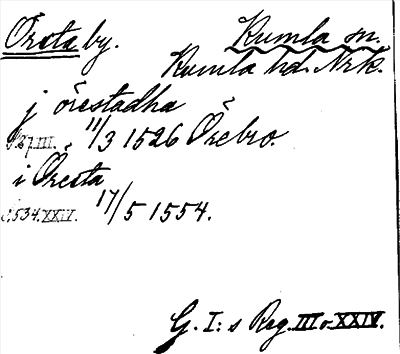 Örsta by. Kumla sn.
Kumla hd. Nrk.
j örestadha
S. 27. III. 11/3 1526 Örebro.
i Öresta
S. 534. XXIV. 17/5 1554.
G. I: s Reg. III o. XXIV.